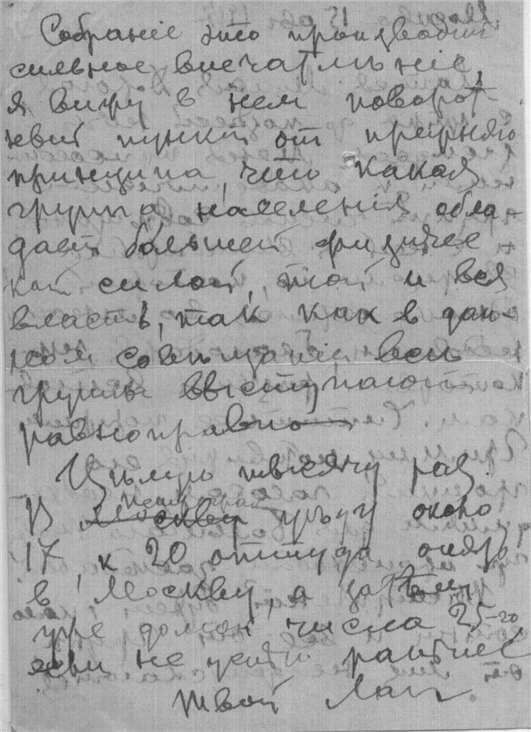 Собраніе это производитъ
сильное впечатлѣніе,
я вижу в нем поворот
ный пункт от прежняго
принципа, что какая
группа населенія обла
дает большей физичес
кой силой, той и вся
власть, так как в дан-
ном совѣщаніи всѣ
группы выступают
равноправно
Цѣлую тысячу раз.
В Петроград уѣду около
17, к 20 оттуда опять
в Москву, а затѣм
уже домой числа 25-20
если не уѣду раньше
твой